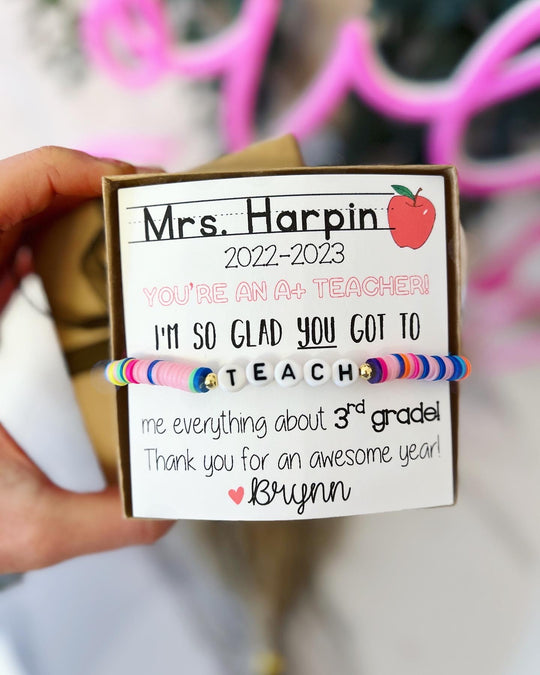 Mrs. Harpin
2022-2023
YOU'RE AN A+ TEACHER!
I'M SO GLAD YOU GOT TO
TEACH
me everything about 3rd grade!
Thank you for an awesome year!
Brynn